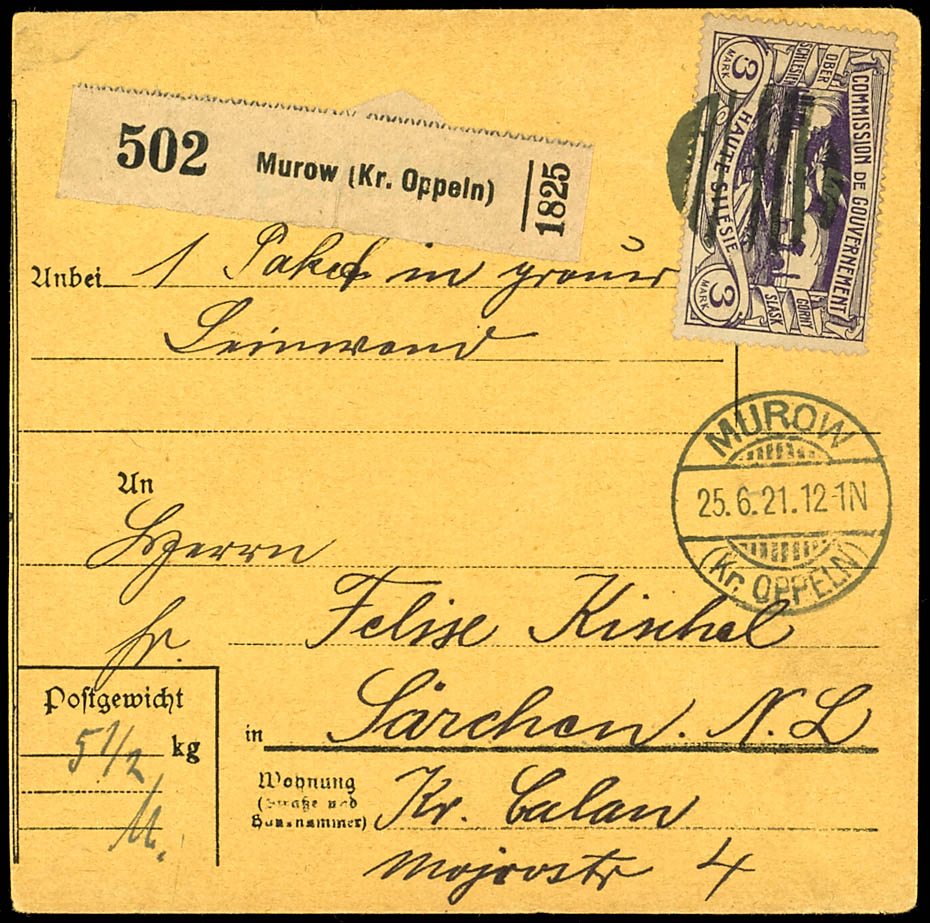 3 MARK
OBER SCHLESIEN
COMMISSION DE GOUVERNEMENT
HAUTE SILESIE
GORNY SLASK
3 MARK
502 Murow (Kr. Oppeln) 1825
Anbei 1 Paket in grauer
Leinwand
MUROW
25.6.21.12-1N
(Kr. OPPELN)
An
Herrn
Fr. Felix Kischel
Postgewicht
5 1/2 kg
in Särchen. N. L
Wohnung
(Straße und
Hausnummer)
Kr. Calau
4